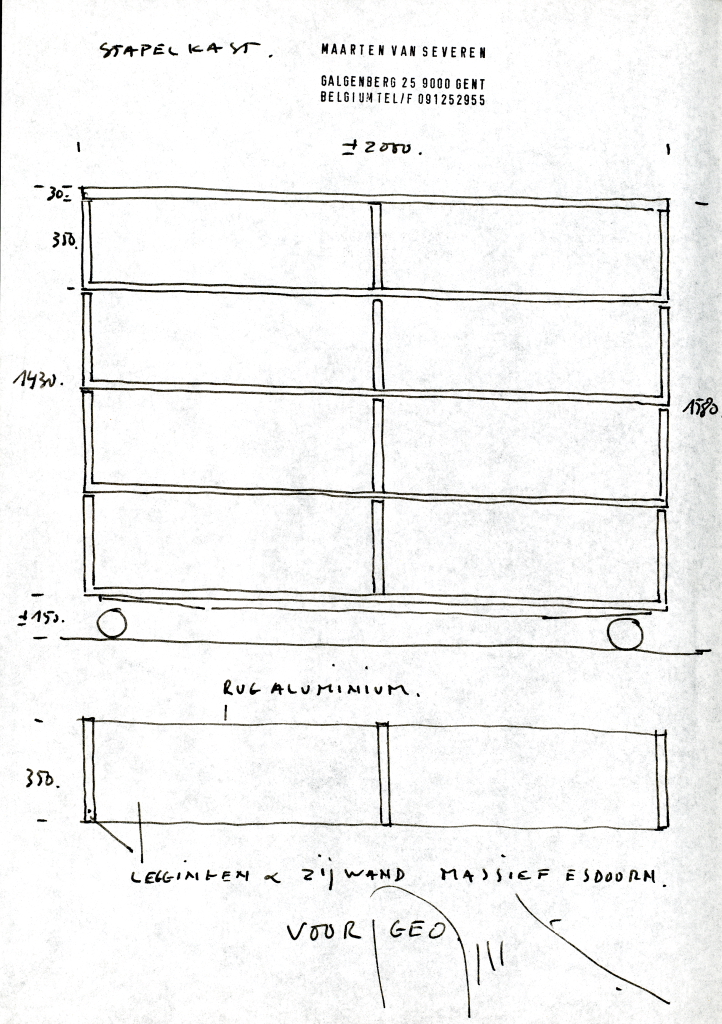 STAPELKAST.
MAARTEN VAN SEVEREN
GALGENBERG 25 9000 GENT
BELGIUM TEL/F 091252955
±2000.
30
350.
1430.
1580
±150.
RUG ALUMINIUM.
350.
LEGGINGEN & ZIJWAND MASSIEF ESDOORN.
VOOR GEO